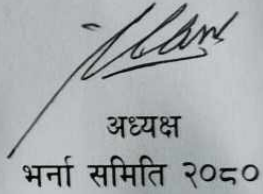 अध्यक्ष
भर्ना समिति २०८०